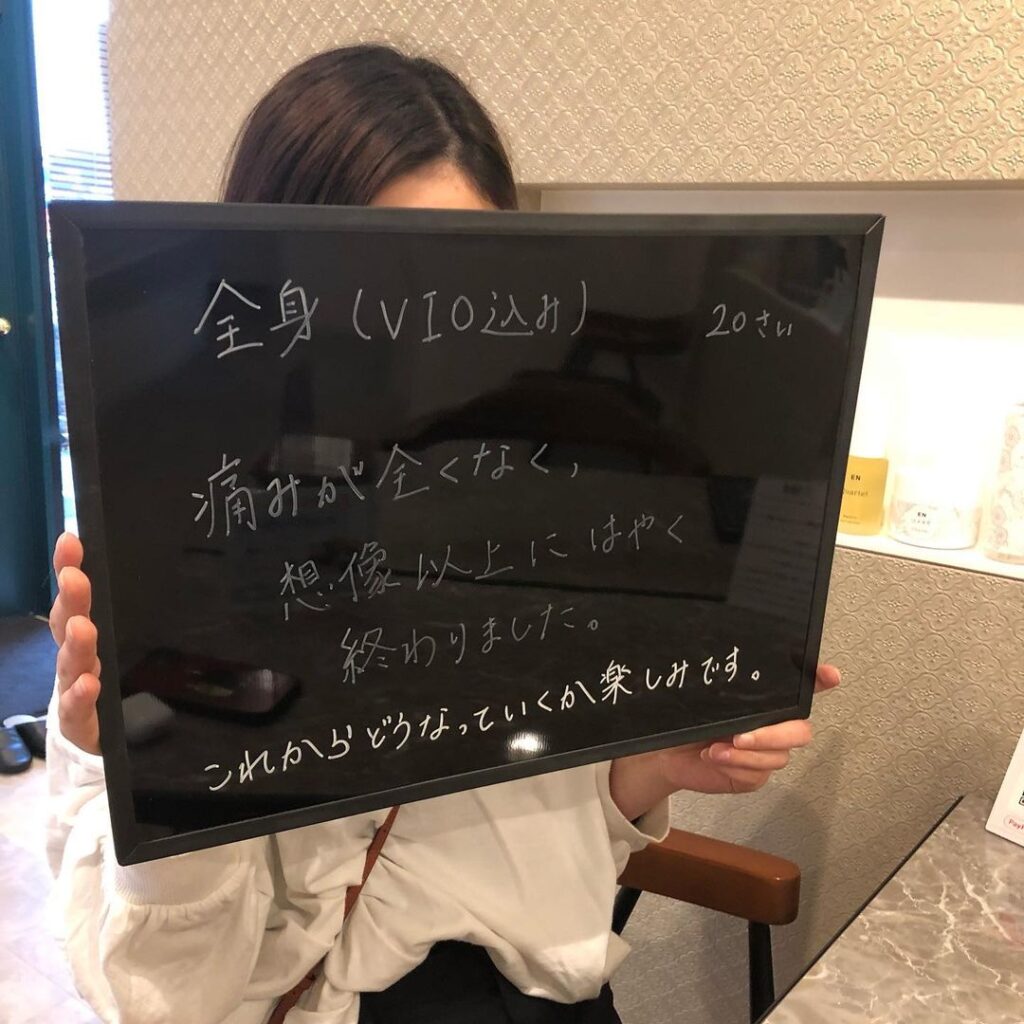 全身(VIO込み) 20さい
痛みが全くなく,
想像以上にはやく
終わりました。
これからどうなっていくか楽しみです。
EN
EN